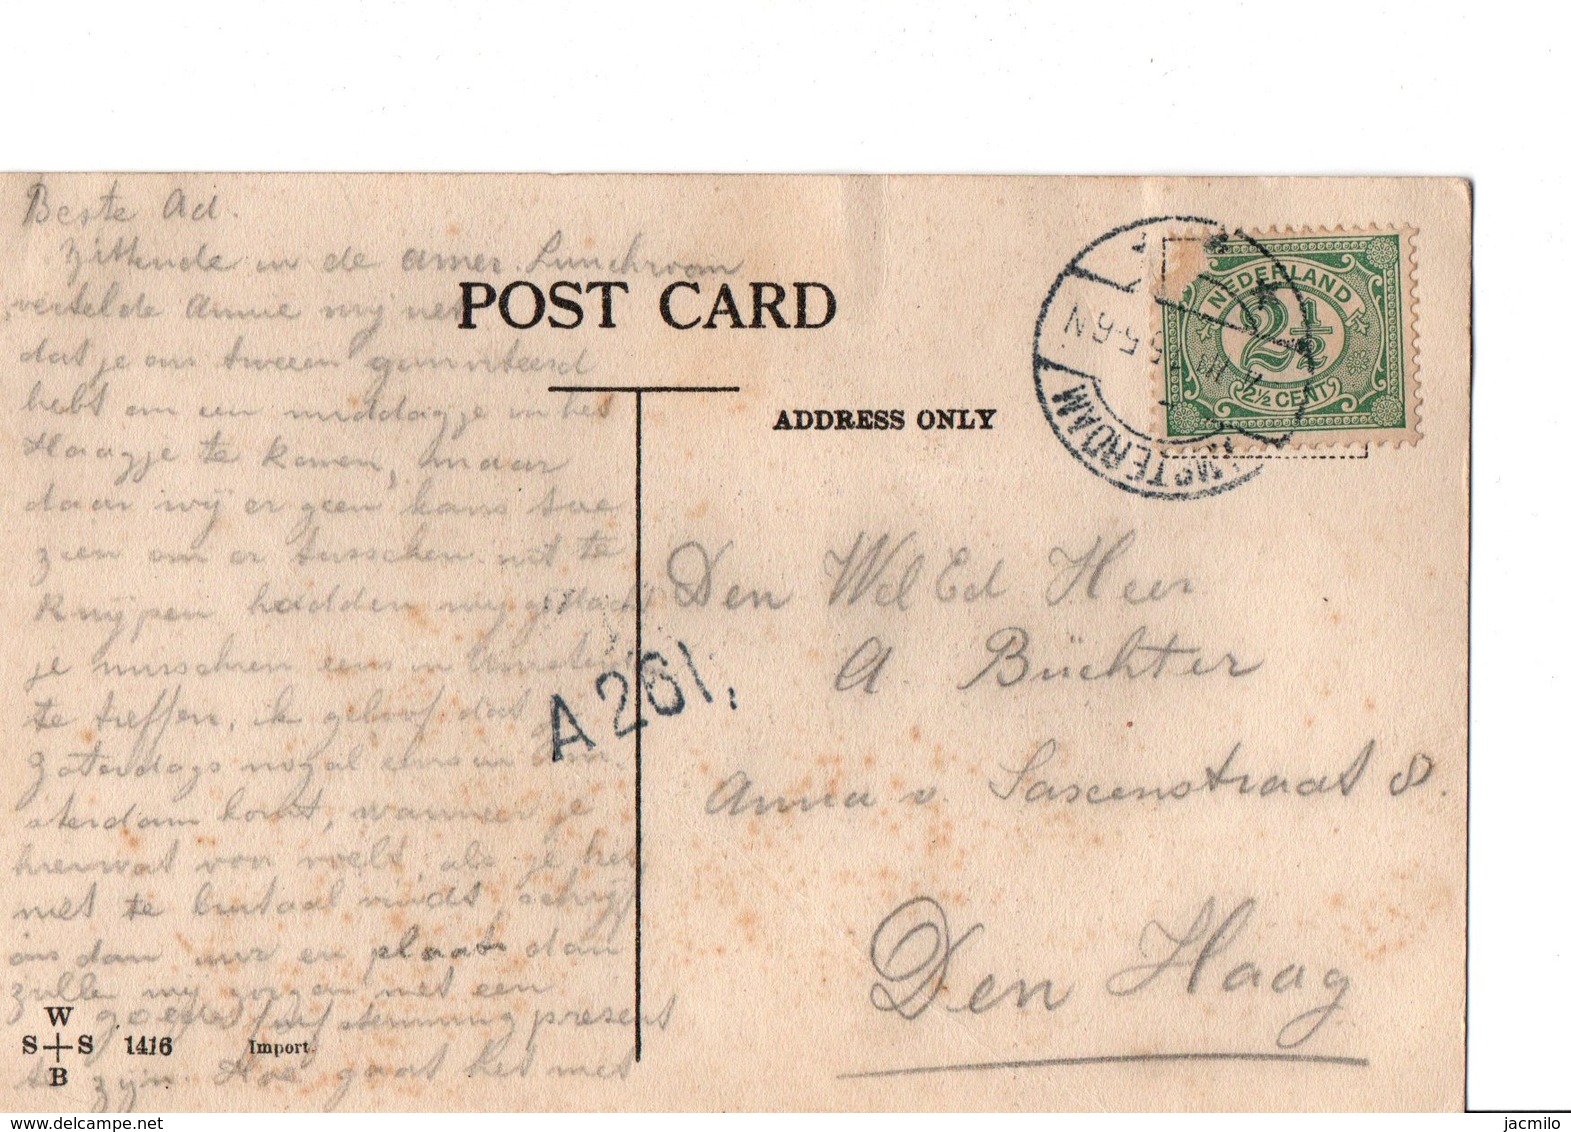 Beste Ad.
Zittende in de amer. Lunchroom
vertelde Annie mij net
dat je ons tweeen
hebt om een middagje in het
Haagje te komen, maar
daar wij er geen kans toe
zien om er tusschen uit te
Knijpen hadden wij gedacht
je misschien eens in
te treffen, ik geloof dat je
Zaterdags nogal eens in Am.
sterdam komt, wanneer je
hierwat van voelt, als je het
niet te brutaal vindt, schrijf
ons dan uur en plaats dan
zullen wij zorgen met een
goede stemming present
te zijn. Hoe gaat het met
POST CARD
ADDRESS ONLY
NEDERLAND
2½
2½ CENT
AMSTERDAM
5-6 N
A 261.
Den Wel Ed Heer
A. Büchter
Anna v. Saxenstraat 8.
Den Haag
W
S S 1416 Import.
B
delcampe.net
jacmilo